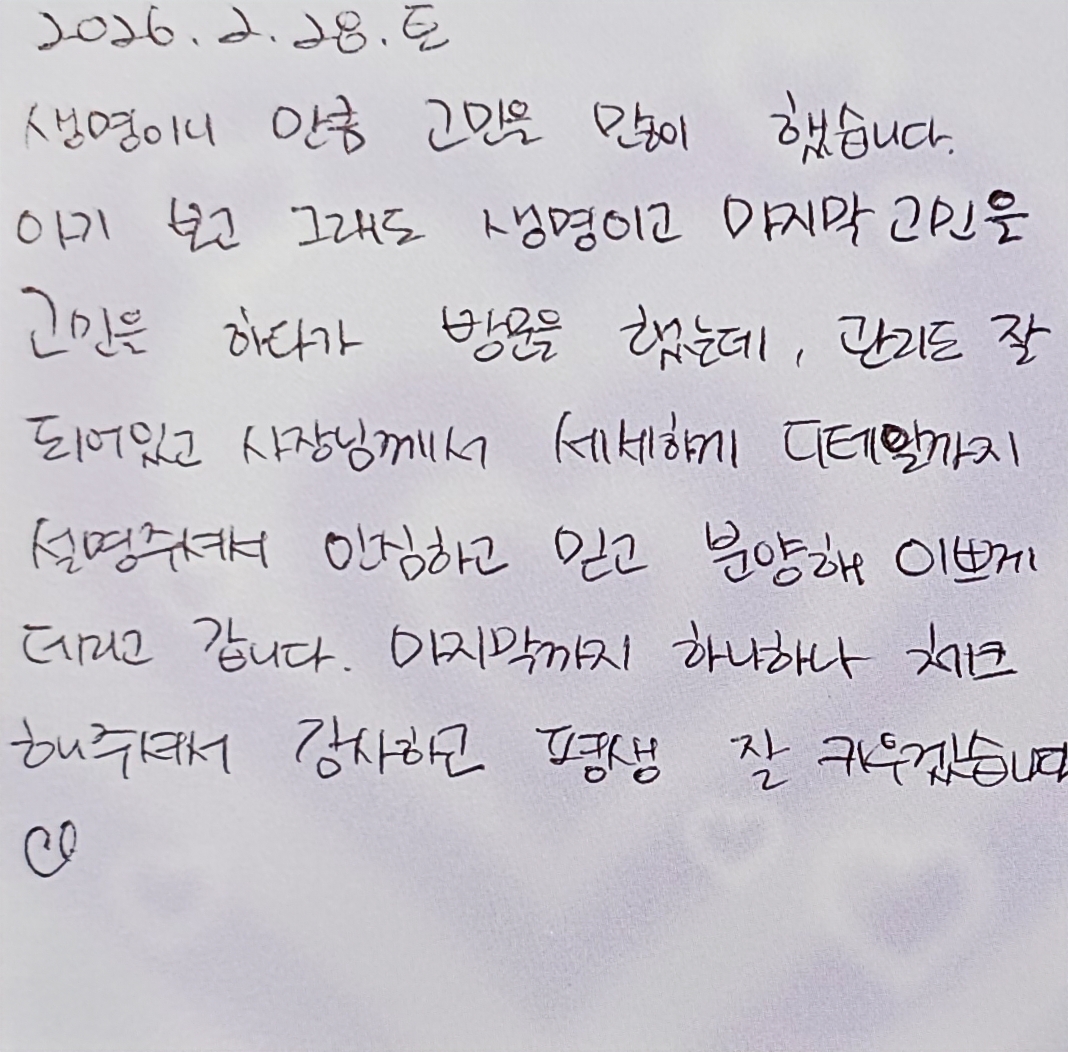 2026. 2. 28. 토
생명이니 만큼 고민은 많이 했습니다.
아기 보고 그래도 생명이고 마지막 고민을
고민을 하다가 방문을 했는데, 관리도 잘
되어있고 사장님께서 세세하게 디테일까지
설명주셔서 안심하고 믿고 분양해 이쁘게
데리고 갑니다. 마지막까지 하나하나 체크
해주셔서 감사하고 평생 잘 키우겠습니다
♡